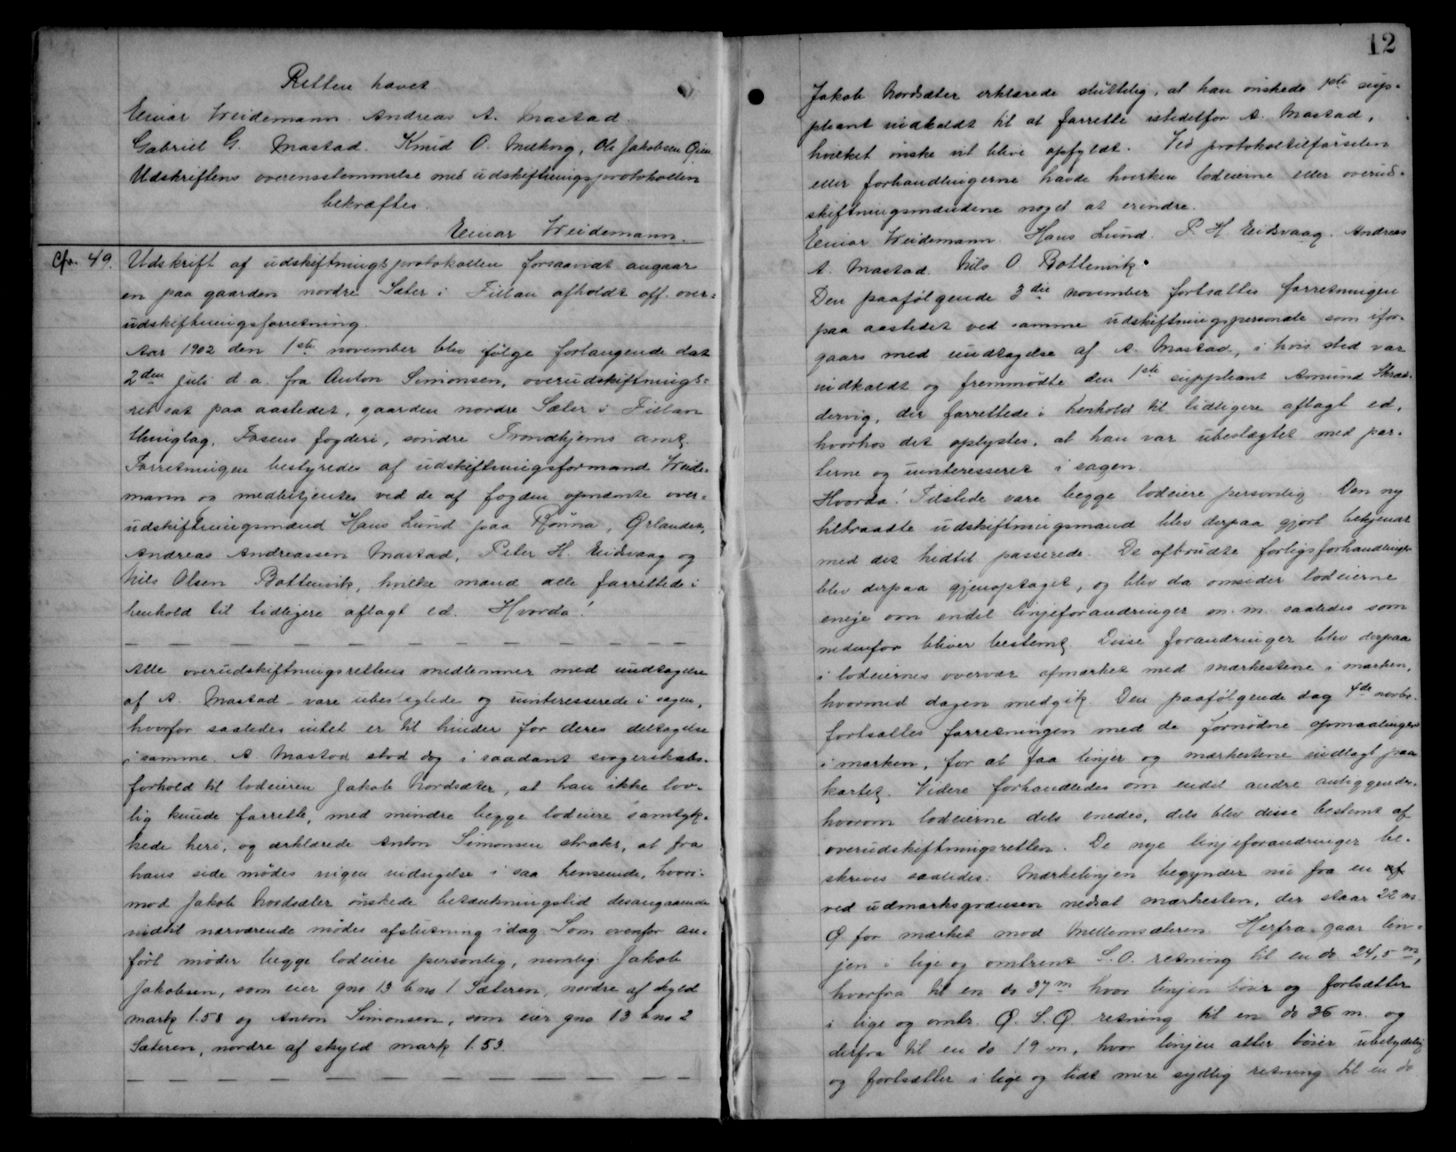 Retten hævet
Einar Weidemann. Andreas A. Mastad.
Gabriel G. Mastad. Knud O. Ole Jakobsen Øien
Udskriftens overensstemmelse med udskiftningsprotokollen
bekræftes.
Einar Weidemann.
Cfr. 49. Udskrift af udskiftningsprotokollen forsaavidt angaar
en paa gaarden nordre Sæter i Fillan afholdt off. over-
udskiftningsforretning.
Aar 1902 den 1ste november blev ifølge forlangende dat
2den juli d. a. fra Anton Simonsen, overudskiftnings-
ret sat paa aastedet, gaarden nordre Sæter i Fillan
thinglag, Fosens fogderi, søndre Trondhjems amt.
Forretningen bestyredes af udskiftningsformand Weide-
mann og medbetjentes ved de af fogden opnævnte over-
udskiftningsmænd Hans Lund paa Rønna, Ørlandet,
Andreas Andreassen Mastad, Peter H. Eidsvaag og
Nils Olsen Bottenvik, hvilke mænd alle forrettede i
henhold til tidligere aflagt ed. Hvorda!
— — — — — — — — — — — — —
Alle overudskiftningsrettens medlemmer med undtagelse
af A. Mastad – vare ubeslegtede og uinteresserede i sagen,
hvorfor saaledes intet er til hinder for deres deltagelse
i samme. A. Mastad stod dog i saadant svogerskabs-
forhold til lodeieren Jakob Nordsæter, at han ikke lov-
lig kunde forrette, med mindre begge lodeiere samtyk-
kede heri, og erklærede Anton Simonsen straks, at fra
hans side mødes ingen indsigelse i saa henseende, hvori-
mod Jakob Nordsæter ønskede betænkningstid desangaaende
indtil nærværende mødes afslutning idag. Som ovenfor an-
ført møder begge lodeiere personlig, nemlig: Jakob
Jakobsen, som eier gno 13 bno 1 Sæteren, nordre af skyld
mark 1.58 og Anton Simonsen, som eier gno 13 bno 2
Sæteren, nordre af skyld mark 1.53.
— — — — — — — — — — — — —
12
Jakob Nordsæter erklærede sluttelig, at han ønskede 1ste sup-
pleant indkaldt til at forrette istedetfor A. Mastad,
hvilket ønske vil blive opfyldt. Ved protokoltilførselen
eller forhandlingerne havde hverken lodeierne eller overud-
skiftningsmændene noget at erindre.
Einar Weidemann. Hans Lund. P. H. Eidsvaag. Andreas
A. Mastad. Nils O. Bottenvik.
Den paafølgende 3die november fortsattes forretningen
paa aastedet ved samme udskiftningspersonale som ifor-
gaars med undtagelse af A. Mastad, i hvis sted var
indkaldt og fremmødte den 1ste suppleant Amund
dervig, der forrettede i henhold til tidligere aflagt ed,
hvorhos det oplystes, at han var ubeslægtet med par-
terne og uinteresseret i sagen.
Hvorda! Tilstede vare begge lodeiere personlig. Den ny
tiltraadte udskiftningsmand blev derpaa gjort bekjendt
med det hidtil passerede. De afbrudte forligsforhandlinger
blev derpaa gjenoptaget, og blev da omsider lodeierne
enige om endel linjeforandringer m. m. saaledes som
nedenfor bliver bestemt. Disse forandringer blev derpaa
i lodeiernes overvær opmærket med mærkestene i marken,
hvormed dagen medgik. Den paafølgende dag 4de novbr.
fortsattes forretningen med de fornødne opmaalinger
i marken, for at faa linjer og mærkestene indlagt paa
kartet. Videre forhandledes om endel andre anliggender,
hvorom lodeierne dels enedes, dels blev disse bestemt af
overudskiftningsretten. De nye linjeforandringer be-
skrives saaledes: Mærkelinjen begynder nu fra en af
ved udmarksgrænsen nedsat mærkesten, der staar 22 m.
Ø. for mærket mod Mellemsæteren. Herfra gaar lin-
jen i lige og omtrent S.O. retning til en do 24,5 m,
hvorfra til en do 37 m hvor linjen bøier og fortsætter
i lige og omtr. Ø. S. Ø. retning til en do 36 m. og
derfra til en do 19 m, hvor linjen atter bøier ubetydelig
og fortsætter i lige og lidt mere sydlig retning til en do